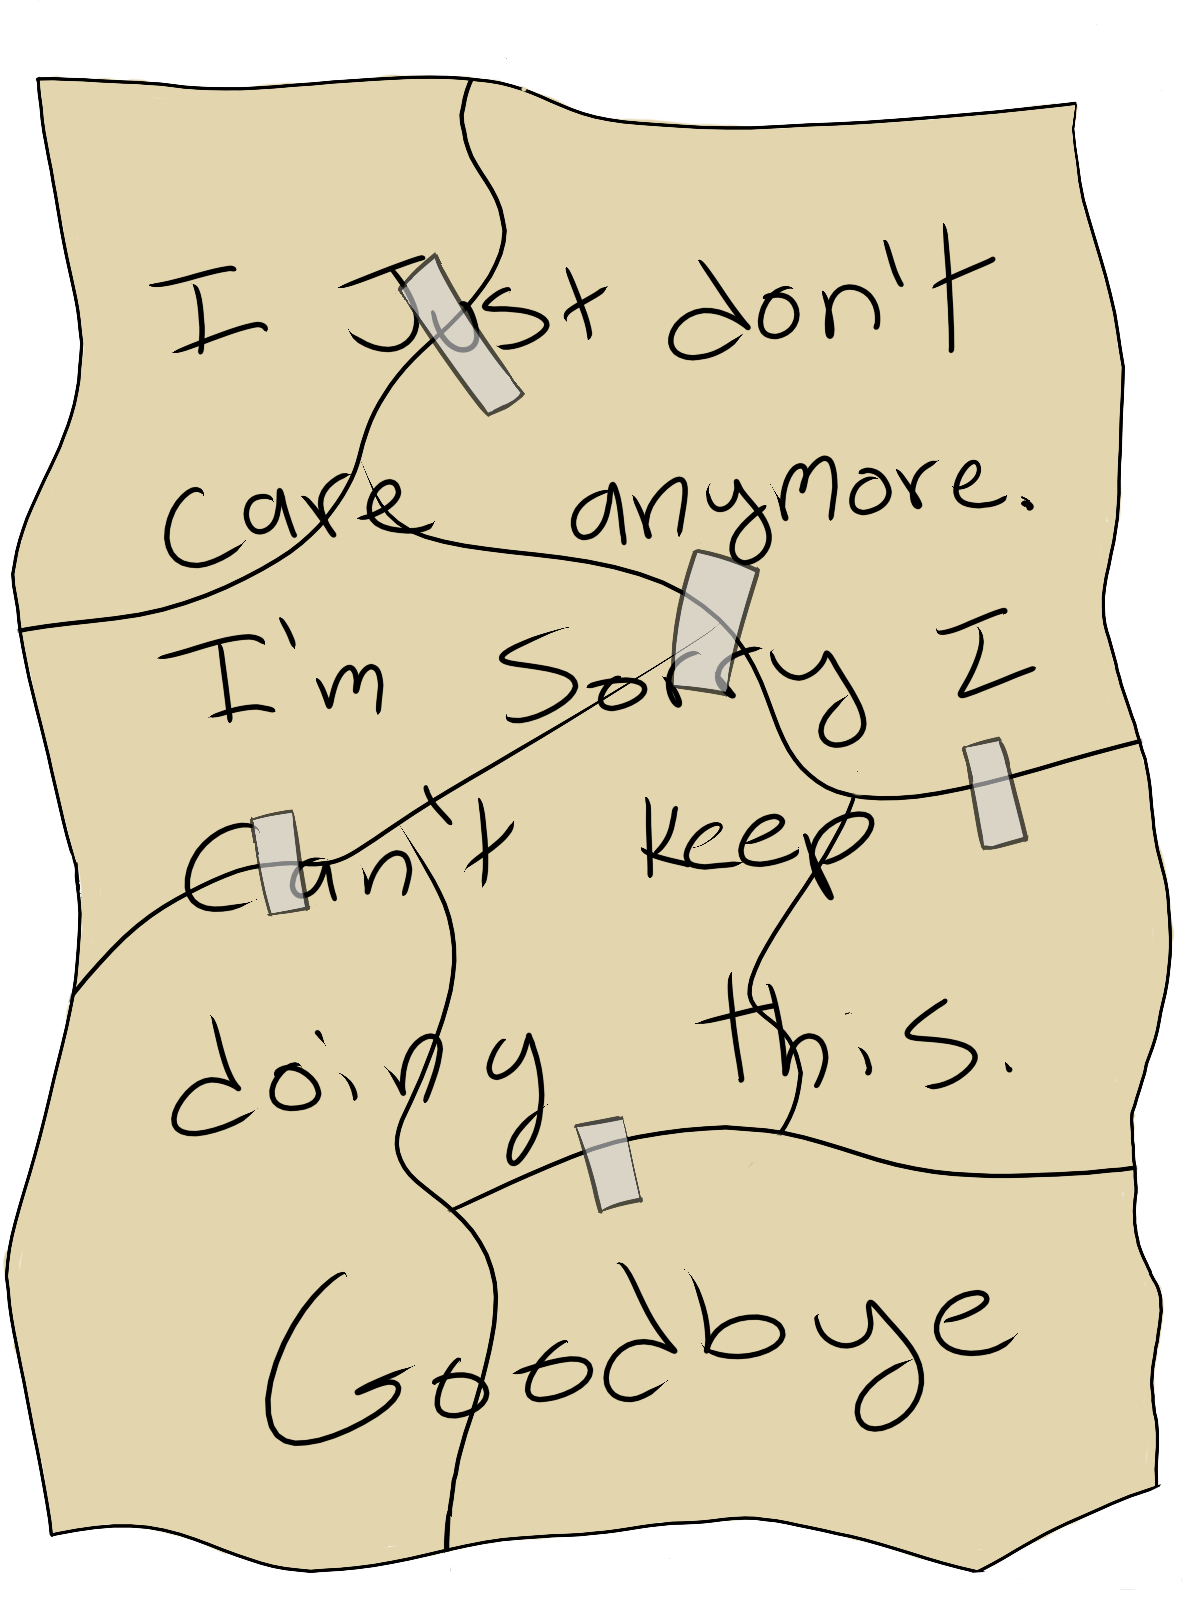 I Just don't
care anymore.
I'm Sorry I
Can't keep
doing this.
Goodbye